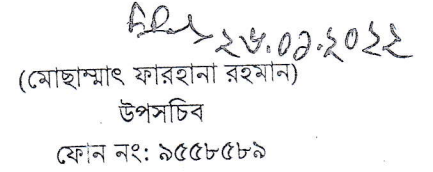 ২৬.০১.২০২২
(মোছাম্মাৎ ফারহানা রহমান)
উপসচিব
ফোন নং: ৯৫৫৮৫৮৯